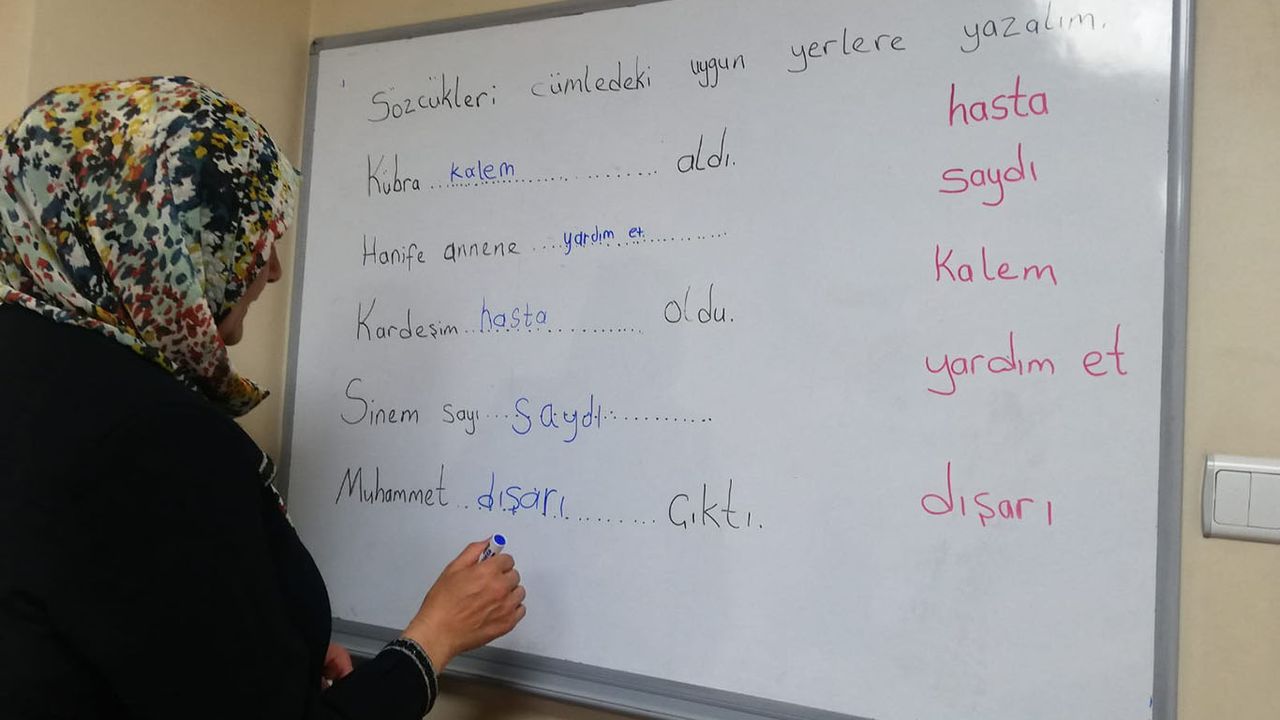 Sözcükleri cümledeki uygun yerlere yazalım.
Kübra kalem aldı.
Hanife annene yardım et
Kardeşim hasta oldu.
Sinem sayı saydı
Muhammet dışarı çıktı.
hasta
saydı
Kalem
yardım et
dışarı